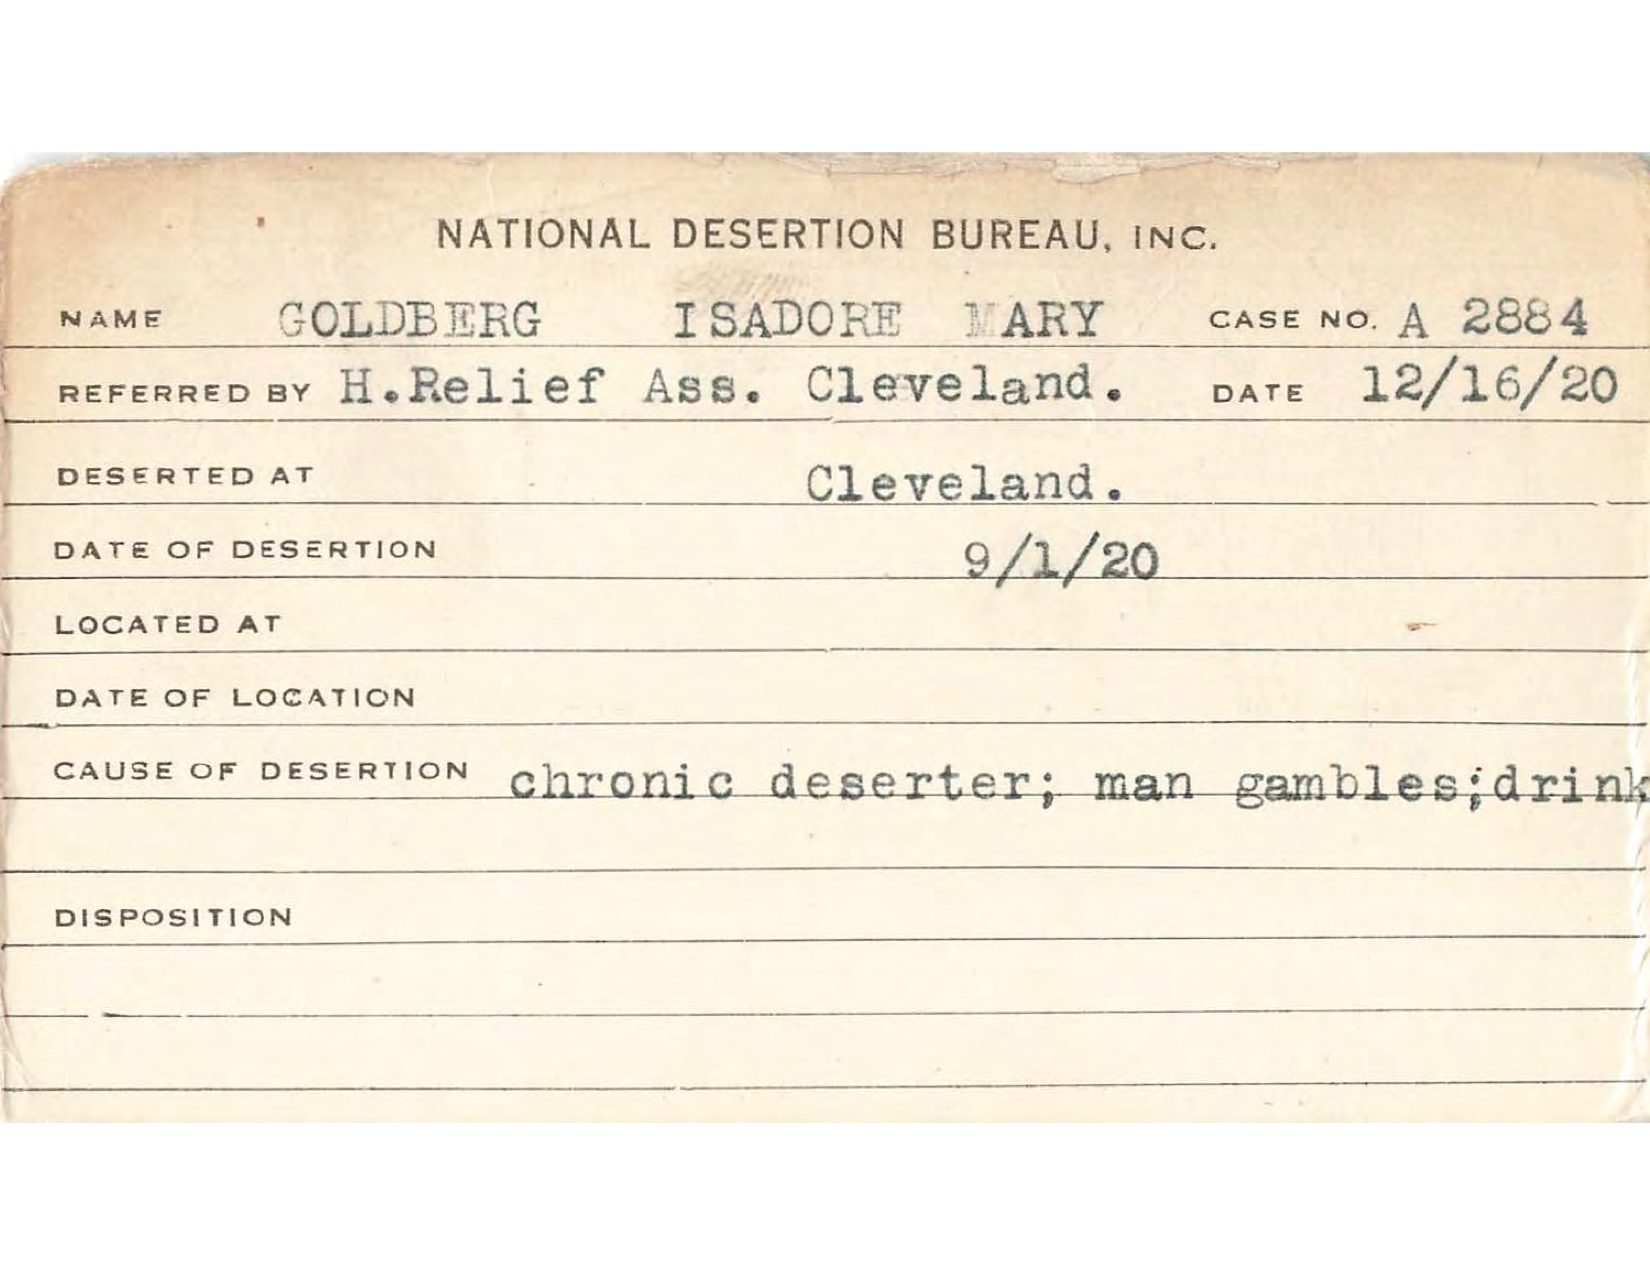 NATIONAL DESERTION BUREAU, INC.
NAME GOLDBERG ISADORE MARY CASE NO. A 2884
REFERRED BY H.Relief Ass. Cleveland. DATE 12/16/20
DESERTED AT Cleveland.
DATE OF DESERTION 9/1/20
LOCATED AT
DATE OF LOCATION
CAUSE OF DESERTION chronic deserter; man gambles;drink
DISPOSITION